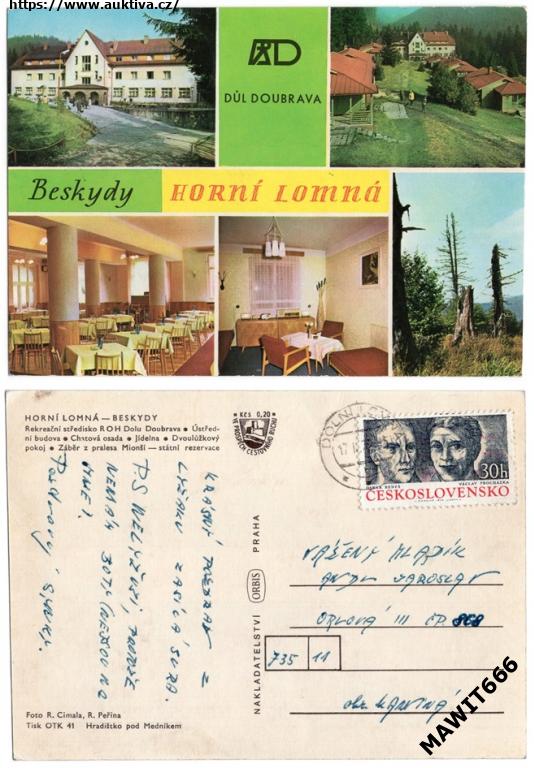 https://www.auktiva.cz/
DŮL DOUBRAVA
Beskydy HORNÍ LOMNÁ
HORNÍ LOMNÁ — BESKYDY
Rekreační středisko ROH Dolu Doubrava ● Ústřed-
ní budova ● Chatová osada ● Jídelna ● Dvoulůžkový
pokoj ● Záběr z pralesa Mionší — státní rezervace
Kčs 0,20
VE PROSPĚCH CESTOVNÍHO RUCHU
DOLNÍ
17
OTAKAR BENEŠ VÁCLAV PROCHÁZKA
30h
ČESKOSLOVENSKO
KRÁSNÝ POZDRAV Z
PS NELYŽUJI, PROTOŽE
NEMÁM BOTY
Pozdravy
NAKLADATELSTVÍ ORBIS PRAHA
VÁŽENÝ
JAROSLAV
ORLOVÁ III ČP. 868
735 11
okr. KARVINÁ
Foto R. Cimala, R. Peřina
Tisk OTK 41 Hradištko pod Medníkem
MAWIT666